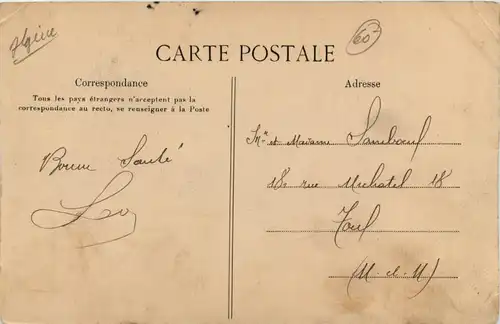 60
CARTE POSTALE
Correspondance
Tous les pays étrangers n'acceptent pas la
correspondance au recto, se renseigner à la Poste
Bonne Santé
Leo
Adresse
Mr et Madame
18, rue Michatel 18
Toul
(M-et-M)